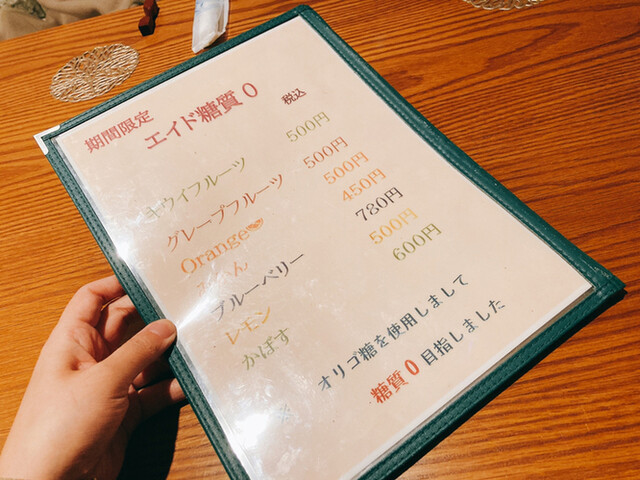 期間限定
エイド糖質0
税込
キウイフルーツ 500円
グレープフルーツ 500円
Orange 500円
みかん 450円
ブルーベリー 780円
レモン 500円
かぼす 600円
※ オリゴ糖を使用しまして
糖質0目指しました